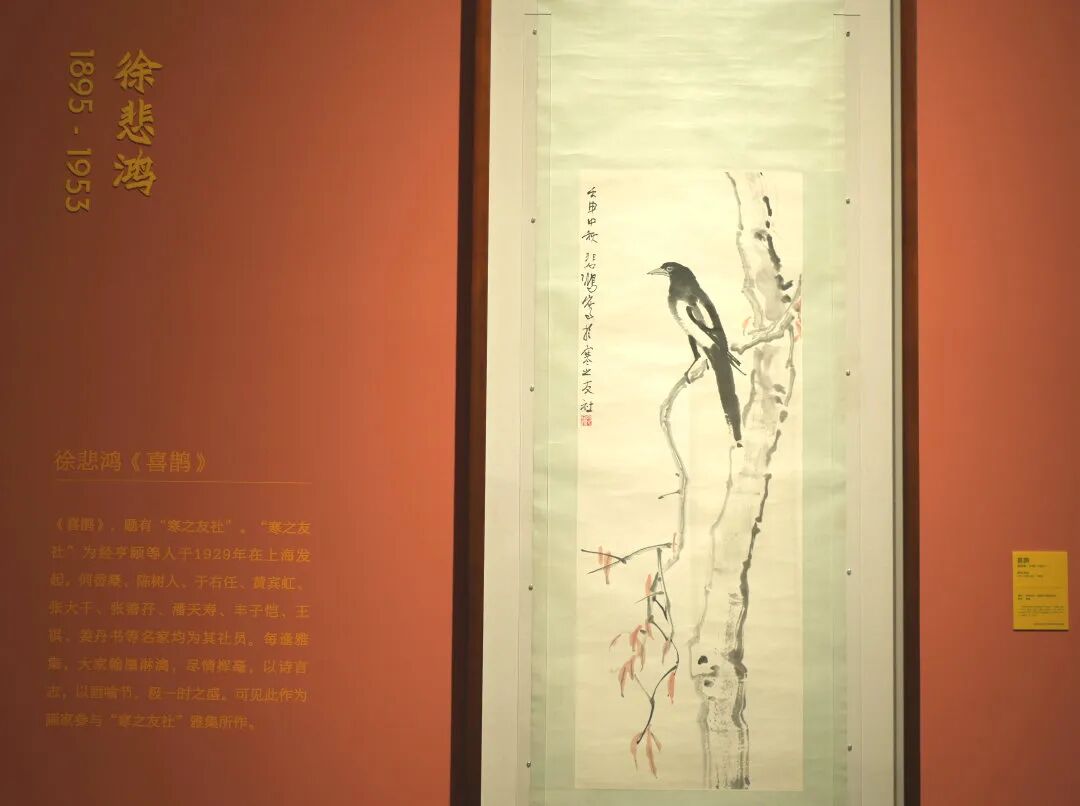 徐悲鸿
1895 - 1953
徐悲鸿《喜鹊》
《喜鹊》，题有“寒之友社”。“寒之友
社”为经亨颐等人于1929年在上海发
起，何香凝、陈树人、于右任、黄宾虹、
张大千、张善孖、潘天寿、丰子恺、王
祺、姜丹书等名家均为其社员。每逢雅
集，大家翰墨淋漓，尽情挥毫，以诗言
志，以画喻节，极一时之盛。可见此作为
画家参与“寒之友社”雅集所作。
壬申中秋 悲鴻写於寒之友社
喜鹊